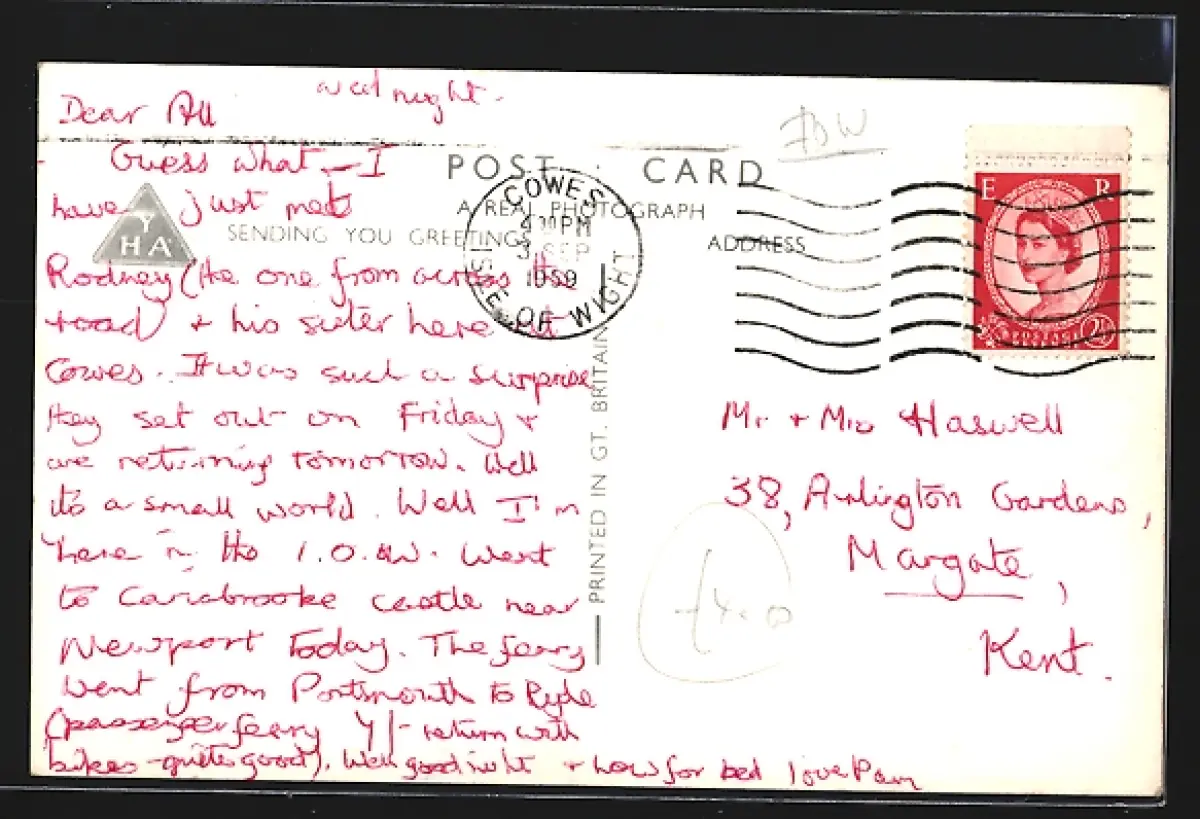 Wed night.
Dear All
Guess what - I
have just met
Rodney (the one from across the
road) + his sister here at
Cowes. It was such a surprise
they set out on Friday +
are returning tomorrow. Well
its a small world. Well I'm
here in the I.O.W. Went
to Carisbrooke castle near
Newport Today. The ferry
went from Portsmouth to Ryde
(passenger ferry 4/- return with
bikes - quite good). Well goodnight + now for bed love Pam
YHA
POST CARD
A REAL PHOTOGRAPH
SENDING YOU GREETINGS
ADDRESS
PRINTED IN GT. BRITAIN
COWES
4 30 PM
3 SEP
1959
ISLE OF WIGHT
IOW
E R
POSTAGE
Mr + Mrs Haswell
38, Arlington Gardens,
Margate,
Kent.